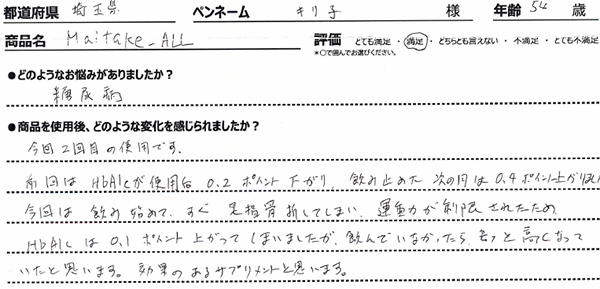 都道府県 埼玉県 ペンネーム キリ子 様 年齢 54 歳
商品名 Maitake-ALL 評価 とても満足・満足・どちらとも言えない・不満足・とても不満足
*○で囲んでお選びください。
●どのようなお悩みがありましたか？
糖尿病
●商品を使用後、どのような変化を感じられましたか？
今回2回目の使用です。
前回はHbA1cが使用后0.2ポイント下がり、飲み止めた次の月は0.4ポイント上がりました
今回は飲み始めて、すぐ足指骨折してしまい、運動が制限されたため
HbA1cは0.1ポイント上がってしまいましたが、飲んでいなかったら、もっと高くなって
いたと思います。効果のあるサプリメントと思います。